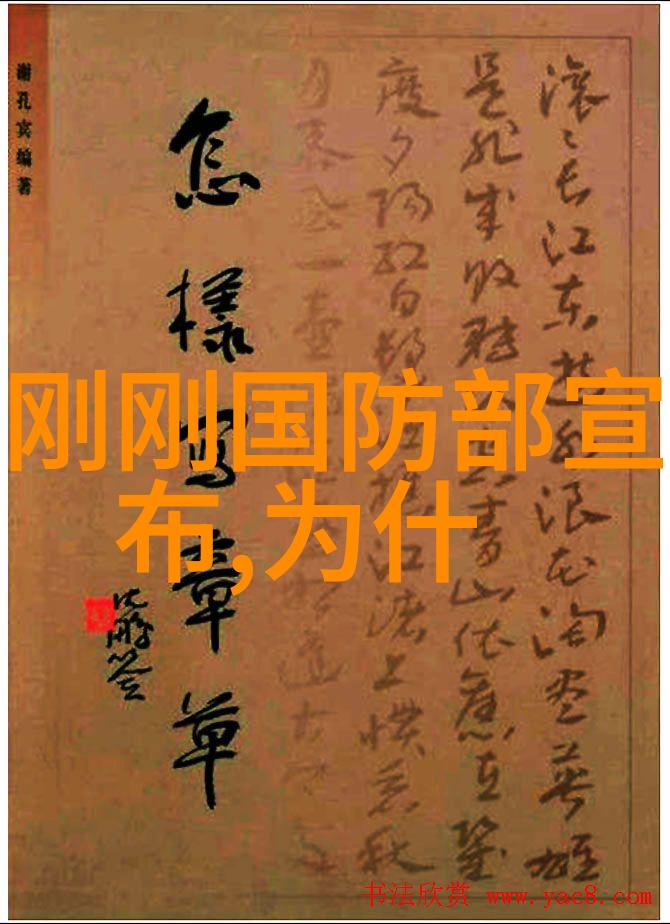 滚〻长江东逝水浪花淘尽英雄
是非成败转头空青山依旧在几
度夕阳红白发渔樵江渚上惯看秋
月春风一壶
怎樣写章草
沈鹏签
谢孔宾编著
刚刚国防部宣
布,为什
书法欣赏 www.yac8.com